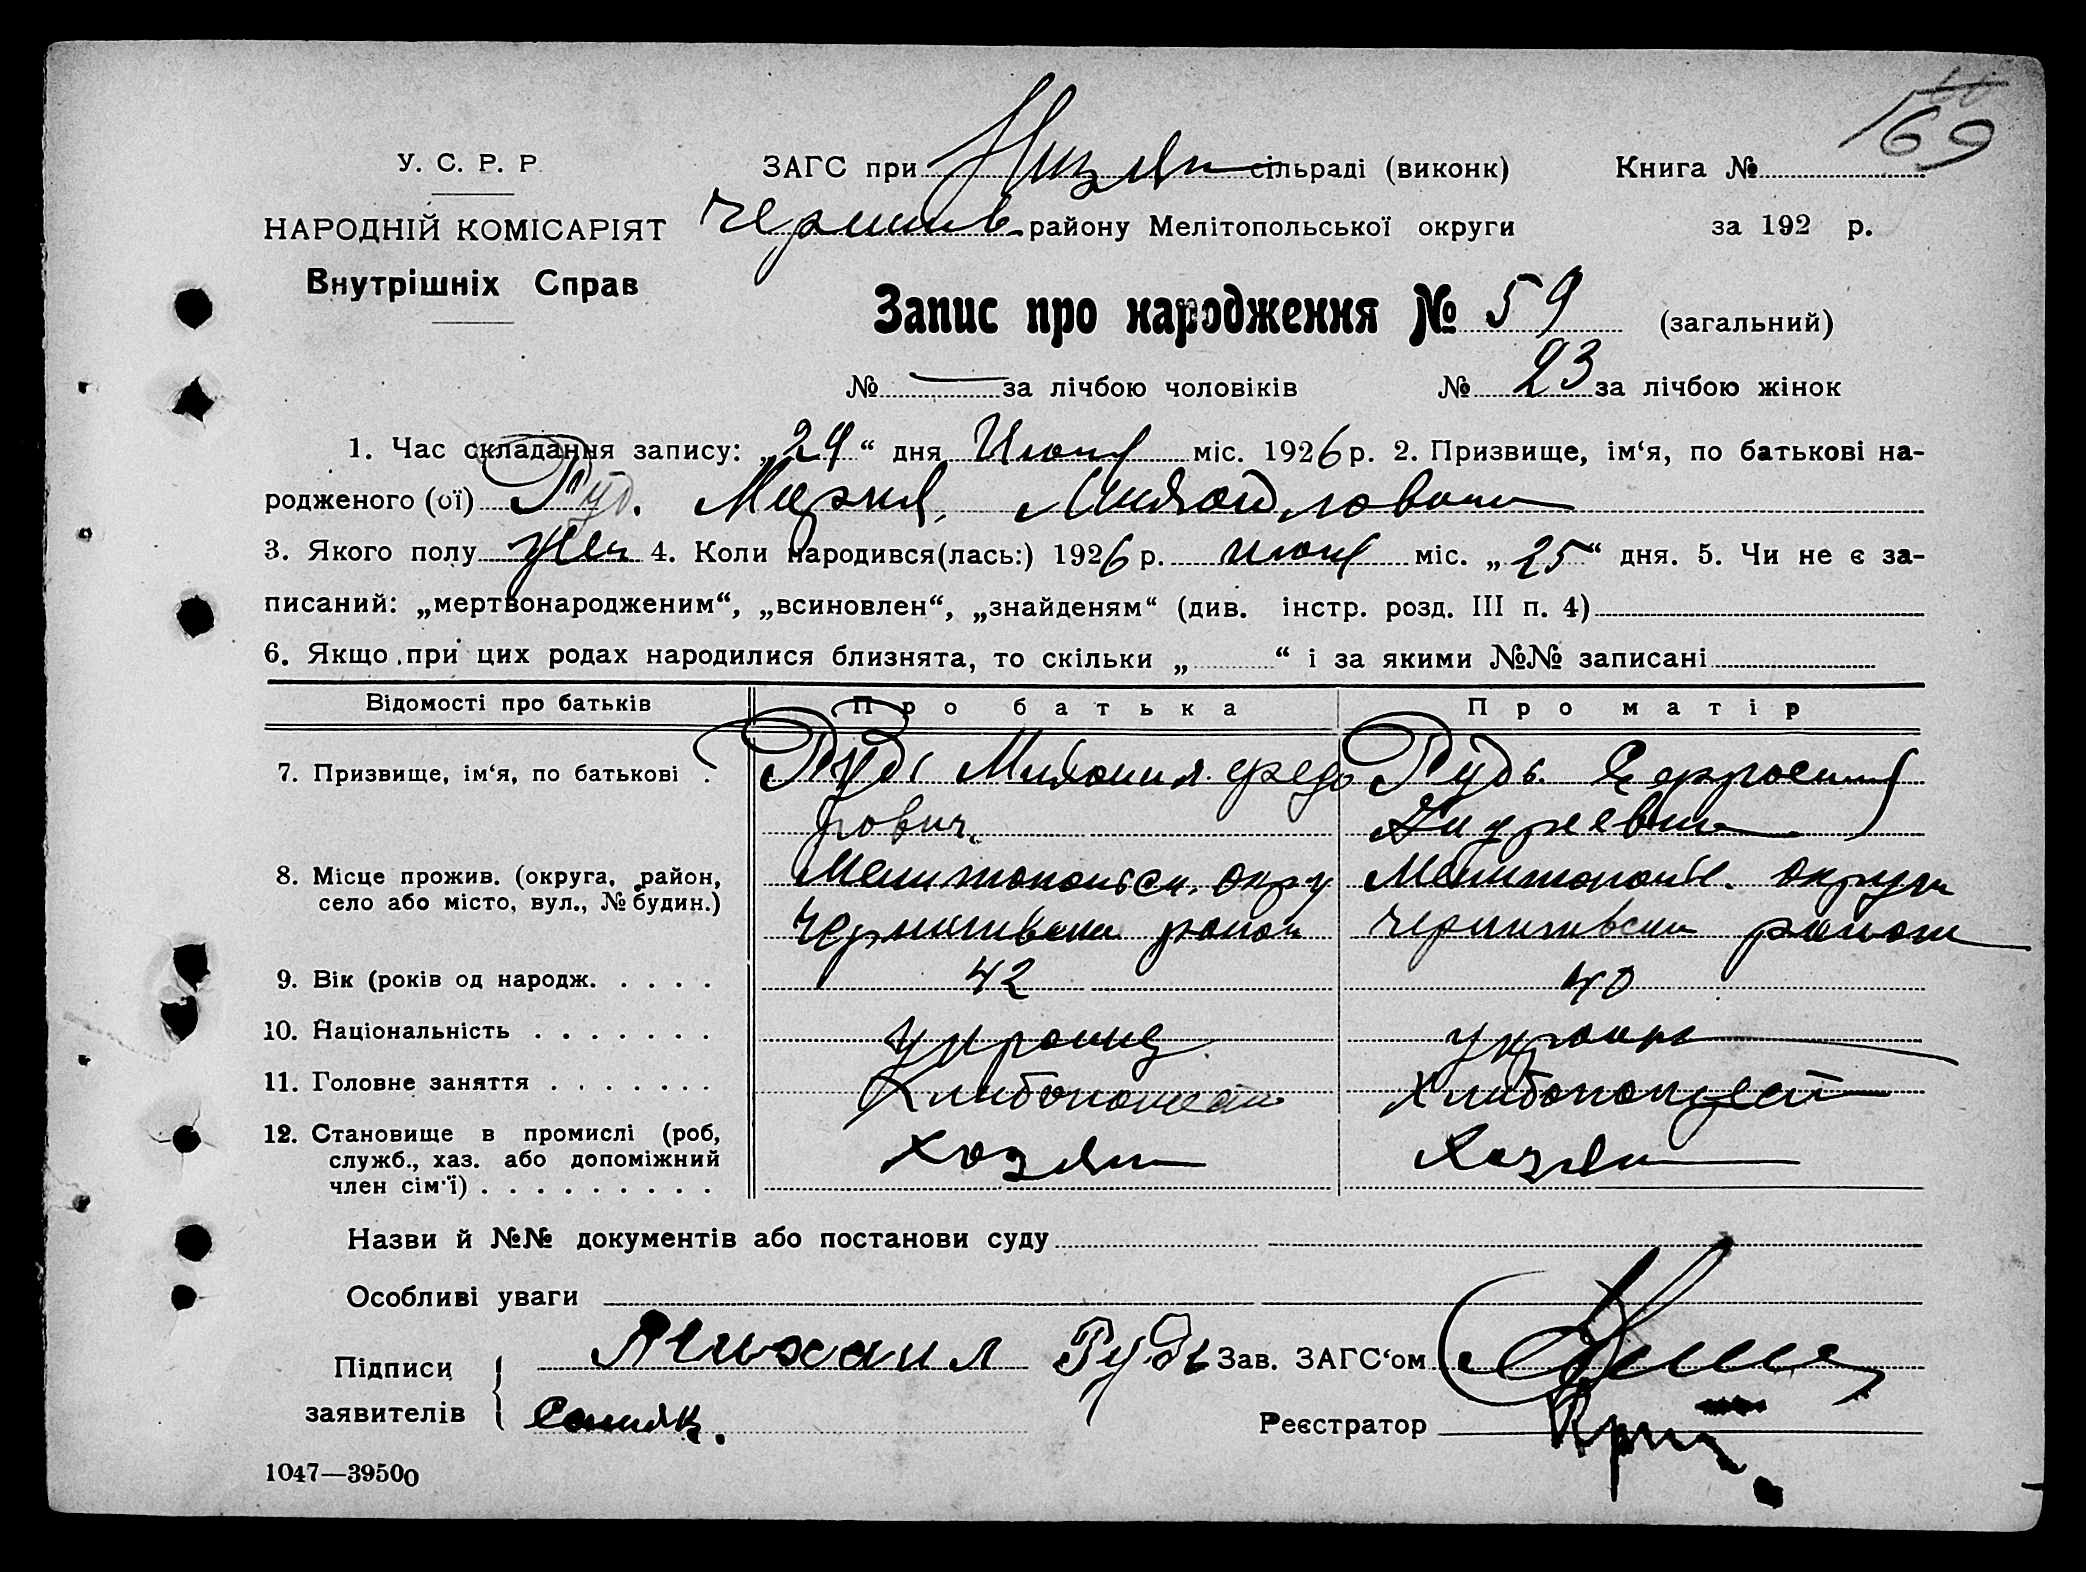 169
У. С. Р. Р.
НАРОДНІЙ КОМІСАРІЯТ
Внутрішніх Справ
ЗАГС при сільраді (виконк) Книга №
району Мелітопольської округи за 192 р.
Запис про народження № 59 (загальний)
№ — за лічбою чоловіків № 23 за лічбою жінок
1. Час складання запису: „29“ дня Июня міс. 1926 р. 2. Призвище, ім‘я, по батькові на-
родженого (ої) Рудь. Мария, Михайловна
3. Якого полу жен 4. Коли народився(лась:) 1926 р. июня міс. „25“ дня. 5. Чи не є за-
писаний: „мертвонародженим“, „всиновлен“, „знайденям“ (див. інстр. розд. III п. 4)
6. Якщо при цих родах народилися близнята, то скільки „ “ і за якими №№ записані
Відомості про батьків Про батька Про матір
7. Призвище, ім‘я, по батькові Рудь Михаил Федо Рудь Ефросиния
рович. Андреевна
8. Місце прожив. (округа, район, Мелитопольск. окру Мелитопольс. округи
село або місто, вул., № будин.) Чернигивски район Чернигивски район
9. Вік (років од народж. 42 40
10. Національність украинц украинка
11. Головне заняття Хлибопашест Хлибопашест
12. Становище в промислі (роб, хозяин хозяин
служб., хаз. або допоміжний
член сім‘ї)
Назви й №№ документів або постанови суду
Особливі уваги
Підписи Михаил Рудь Зав. ЗАГС‘ом
заявителів Реєстратор
1047—39500